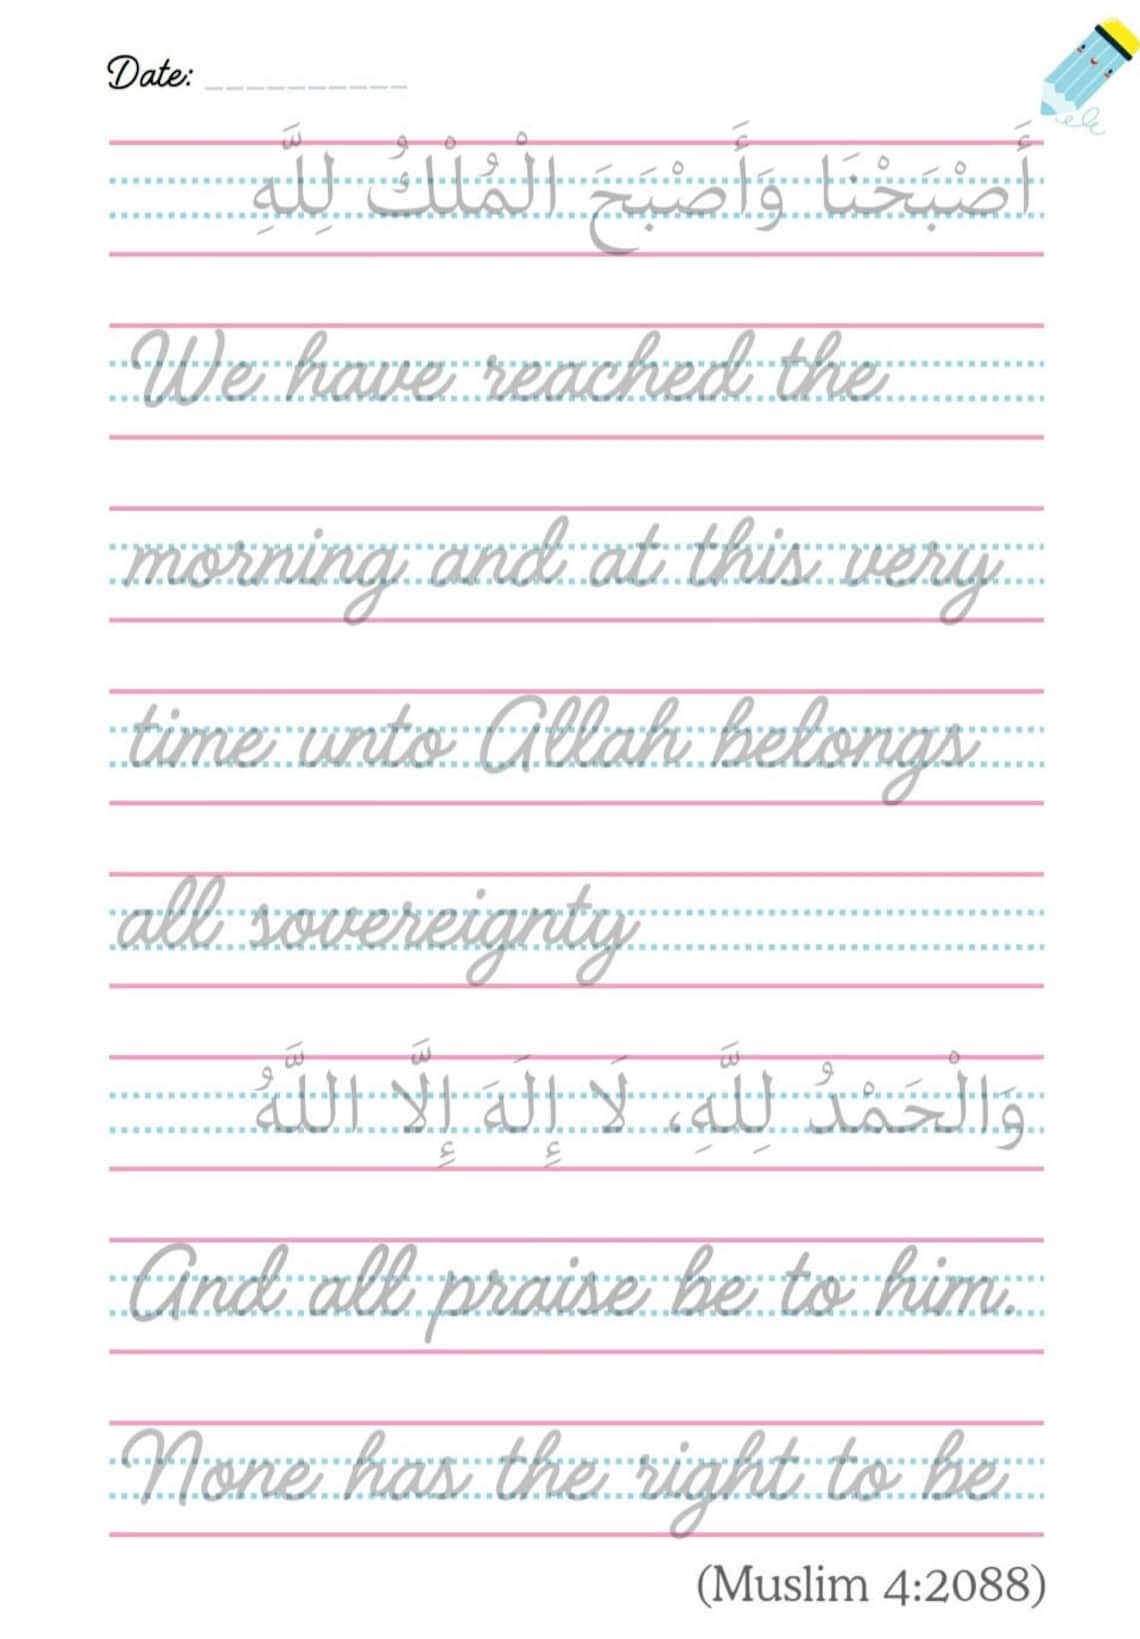 Date:
أَصْبَحْنَا وَأَصْبَحَ الْمُلْكُ لِلَّهِ
We have reached the
morning and at this very
time unto Allah belongs
all sovereignty
وَالْحَمْدُ لِلَّهِ، لَا إِلَهَ إِلَّا اللَّهُ
And all praise be to him.
None has the right to be
(Muslim 4:2088)